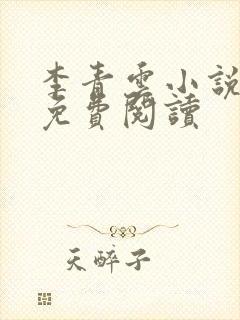 李青雲小説
免費閱讀
天醉子